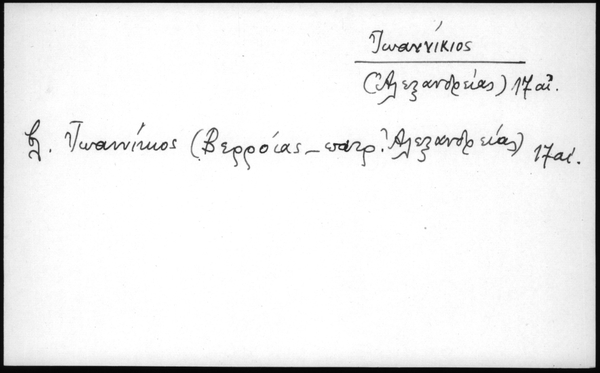 Ἰωαννίκιος
(Ἀλεξανδρείας) 17 αἰ.
βλ. Ἰωαννίκιος (Βερροίας – πατρ. Ἀλεξανδρείας) 17 αἰ.